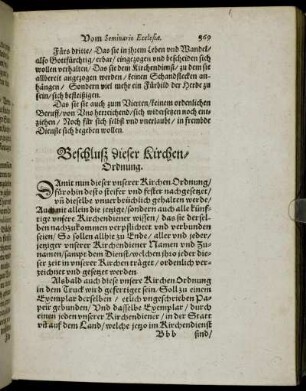 Vom Seminario Ecclesiæ. 569
Fürs dritte/ Das sie in jhrem Leben vnd Wandel/
also Gottfürchtig/ erbar/ eingezogen vnd bescheiden sich
wollen verhalten/ Das sie dem Kirchendienst/ zu dem sie
allbereit angezogen werden/ keinen Schandflecken an-
hängen/ Sondern viel mehr ein Fürbild der Herde zu
sein/ sich befleissigen.
Das sie sie auch zum Vierten/ keinem ordenlichen
Beruff/ von Vns herreichend/ sich widersetzen noch ent-
ziehen/ Noch für sich selbst vnd vnerlaubt/ in frembde
Dienste sich begeben wollen.
Beschluß dieser Kirchen-
Ordnung.
Damit nun dieser vnserer Kirchen Ordnung/
førohin desto steiffer vnd fester nachgesetzt/
vñ dieselbe vnuerbrüchlich gehalten werde/
Auch nit allein die jetzige/ sondern auch alle künff-
tige vnsere Kirchendiener wissen/ das sie dersel-
ben nachzukommen verpflichtet vnd verbunden
seien/ So sollen allhie zu Ende/ aller vnd jeder/
jetziger vnserer Kirchendiener Namen vnd Zu-
namen/ sampt dem Dienst/ welchen jhro jeder die-
ser zeit in vnserer Kirchen träget/ ordenlich ver-
zeichnet vnd gesetzet werden.
Alsbald auch diese vnsere Kirchen Ordnung
in dem Truck wird gefertiget sein/ Soll zu einem
Exemplar derselben/ etlich vngeschrieben Pa-
peyr gebunden/ Vnd dasselbe Exemplar/ durch
einen jeden vnserer Kirchendiener/ in der Statt
vñ auf dem Land/ welche jetzo im Kirchendienst
B b b sind/